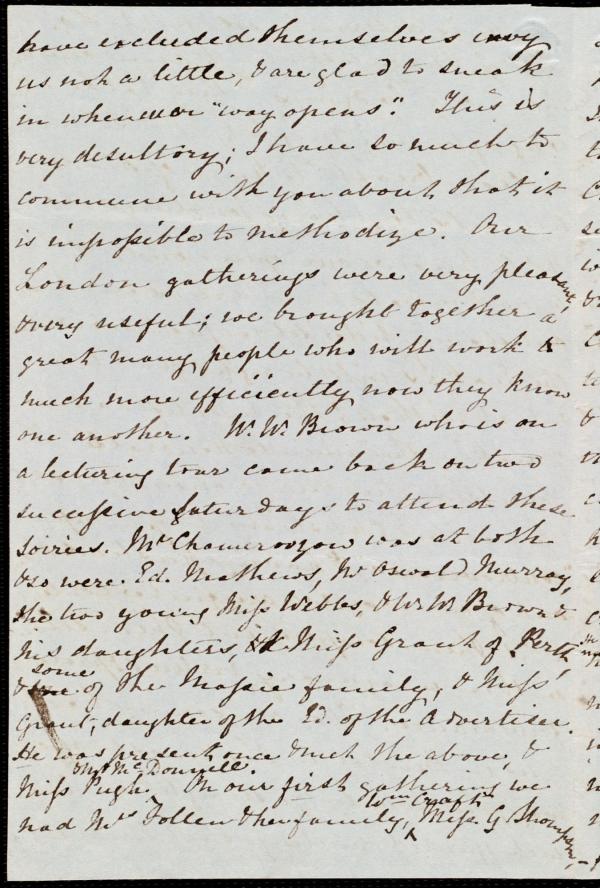 have excluded themselves envy
us not a little, & are glad to sneak
in whenever "way opens". This is
very desultory; I have so much to
commune with you about, that it
is impossible to methodize. Our
London gatherings were very pleasant,
& very useful; we brought together a
great many people who will work
much more efficiently now they know
one another. W. W. Brown who is on
a lecturing tour came back on two
successive Saturdays to attend these
soiries. Mr Chamerovzow was at both
& so were Ed. Mathews, Mr Oswald Murray,
the two young Miss Webbs, & W W Brown &
his daughters, & Miss Grant of Perth,
some
& of the Massie family, & Miss
Grant, daughter of the Ed. of the Advertiser.
He was present once & much the above, &
Mr McDonnell.
Miss Pugh. On our first gathering we
Wm Craft
had Mrs Follen & her family, Miss G Thompson,